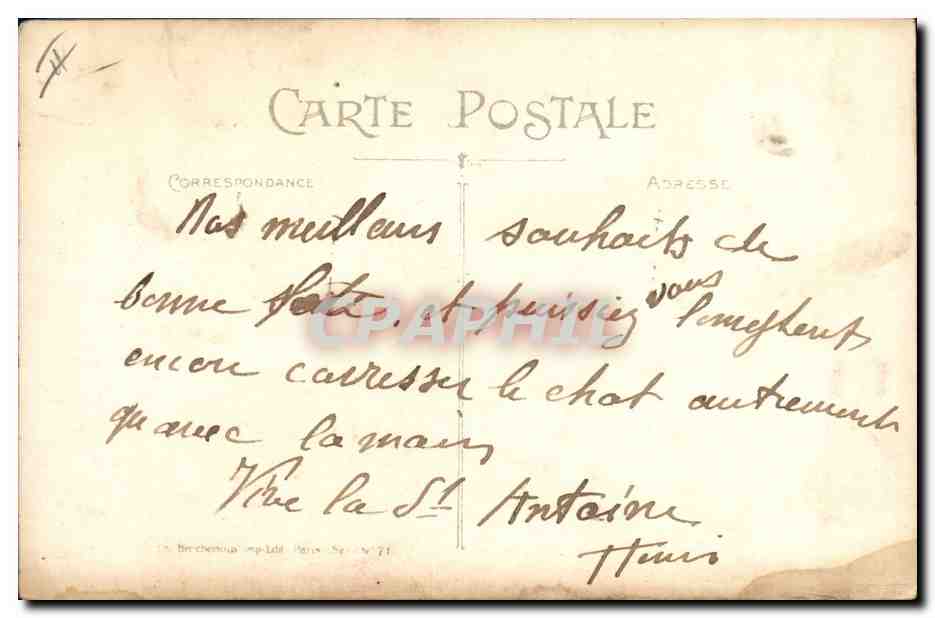 CARTE POSTALE
CORRESPONDANCE
ADRESSE
Nos meilleurs souhaits de
bonne fête. et puissiez vous longtemps
encore carresser le chat autrement
qu'avec la main
Vive la St Antoine
Henri
CPAPHIL
Paris